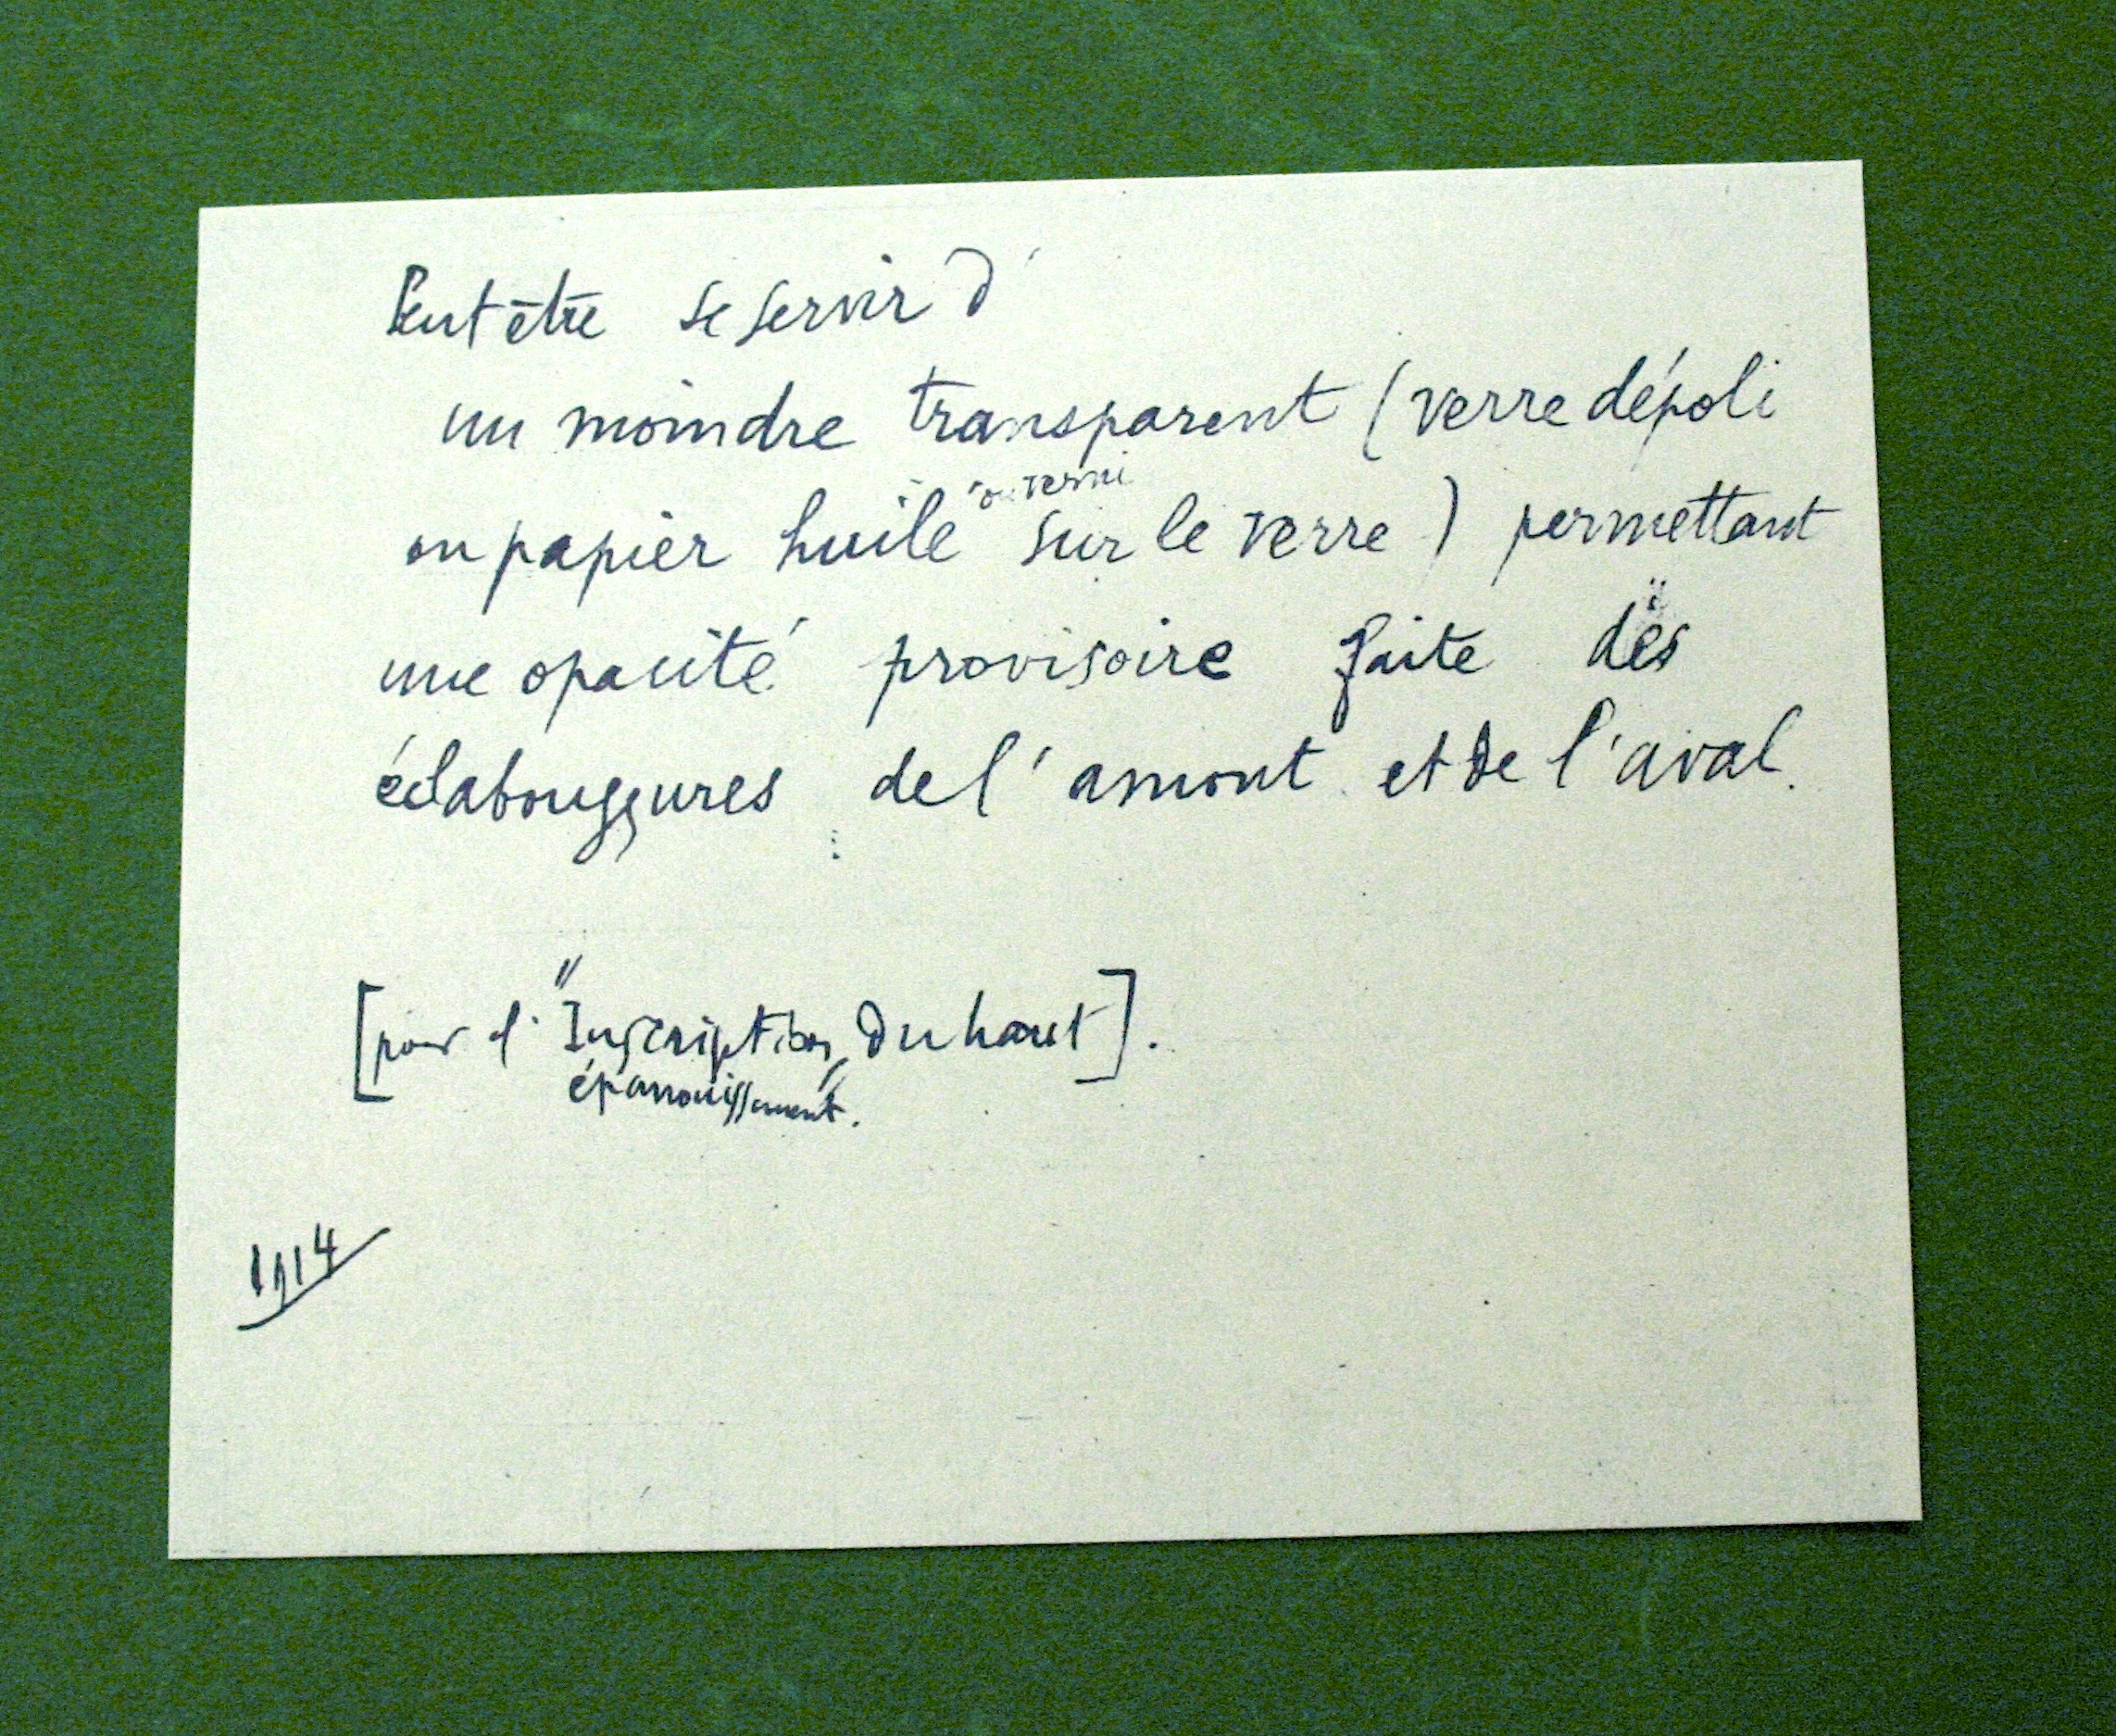 Peut être se servir d'
un moindre transparent (verre dépoli
ou papier huilé ou verni sur le verre) permettant
une opacité provisoire faite des
éclaboussures de l'amont et de l'aval.
[pour l' "Inscription" du haut].
épanouissement.
1914